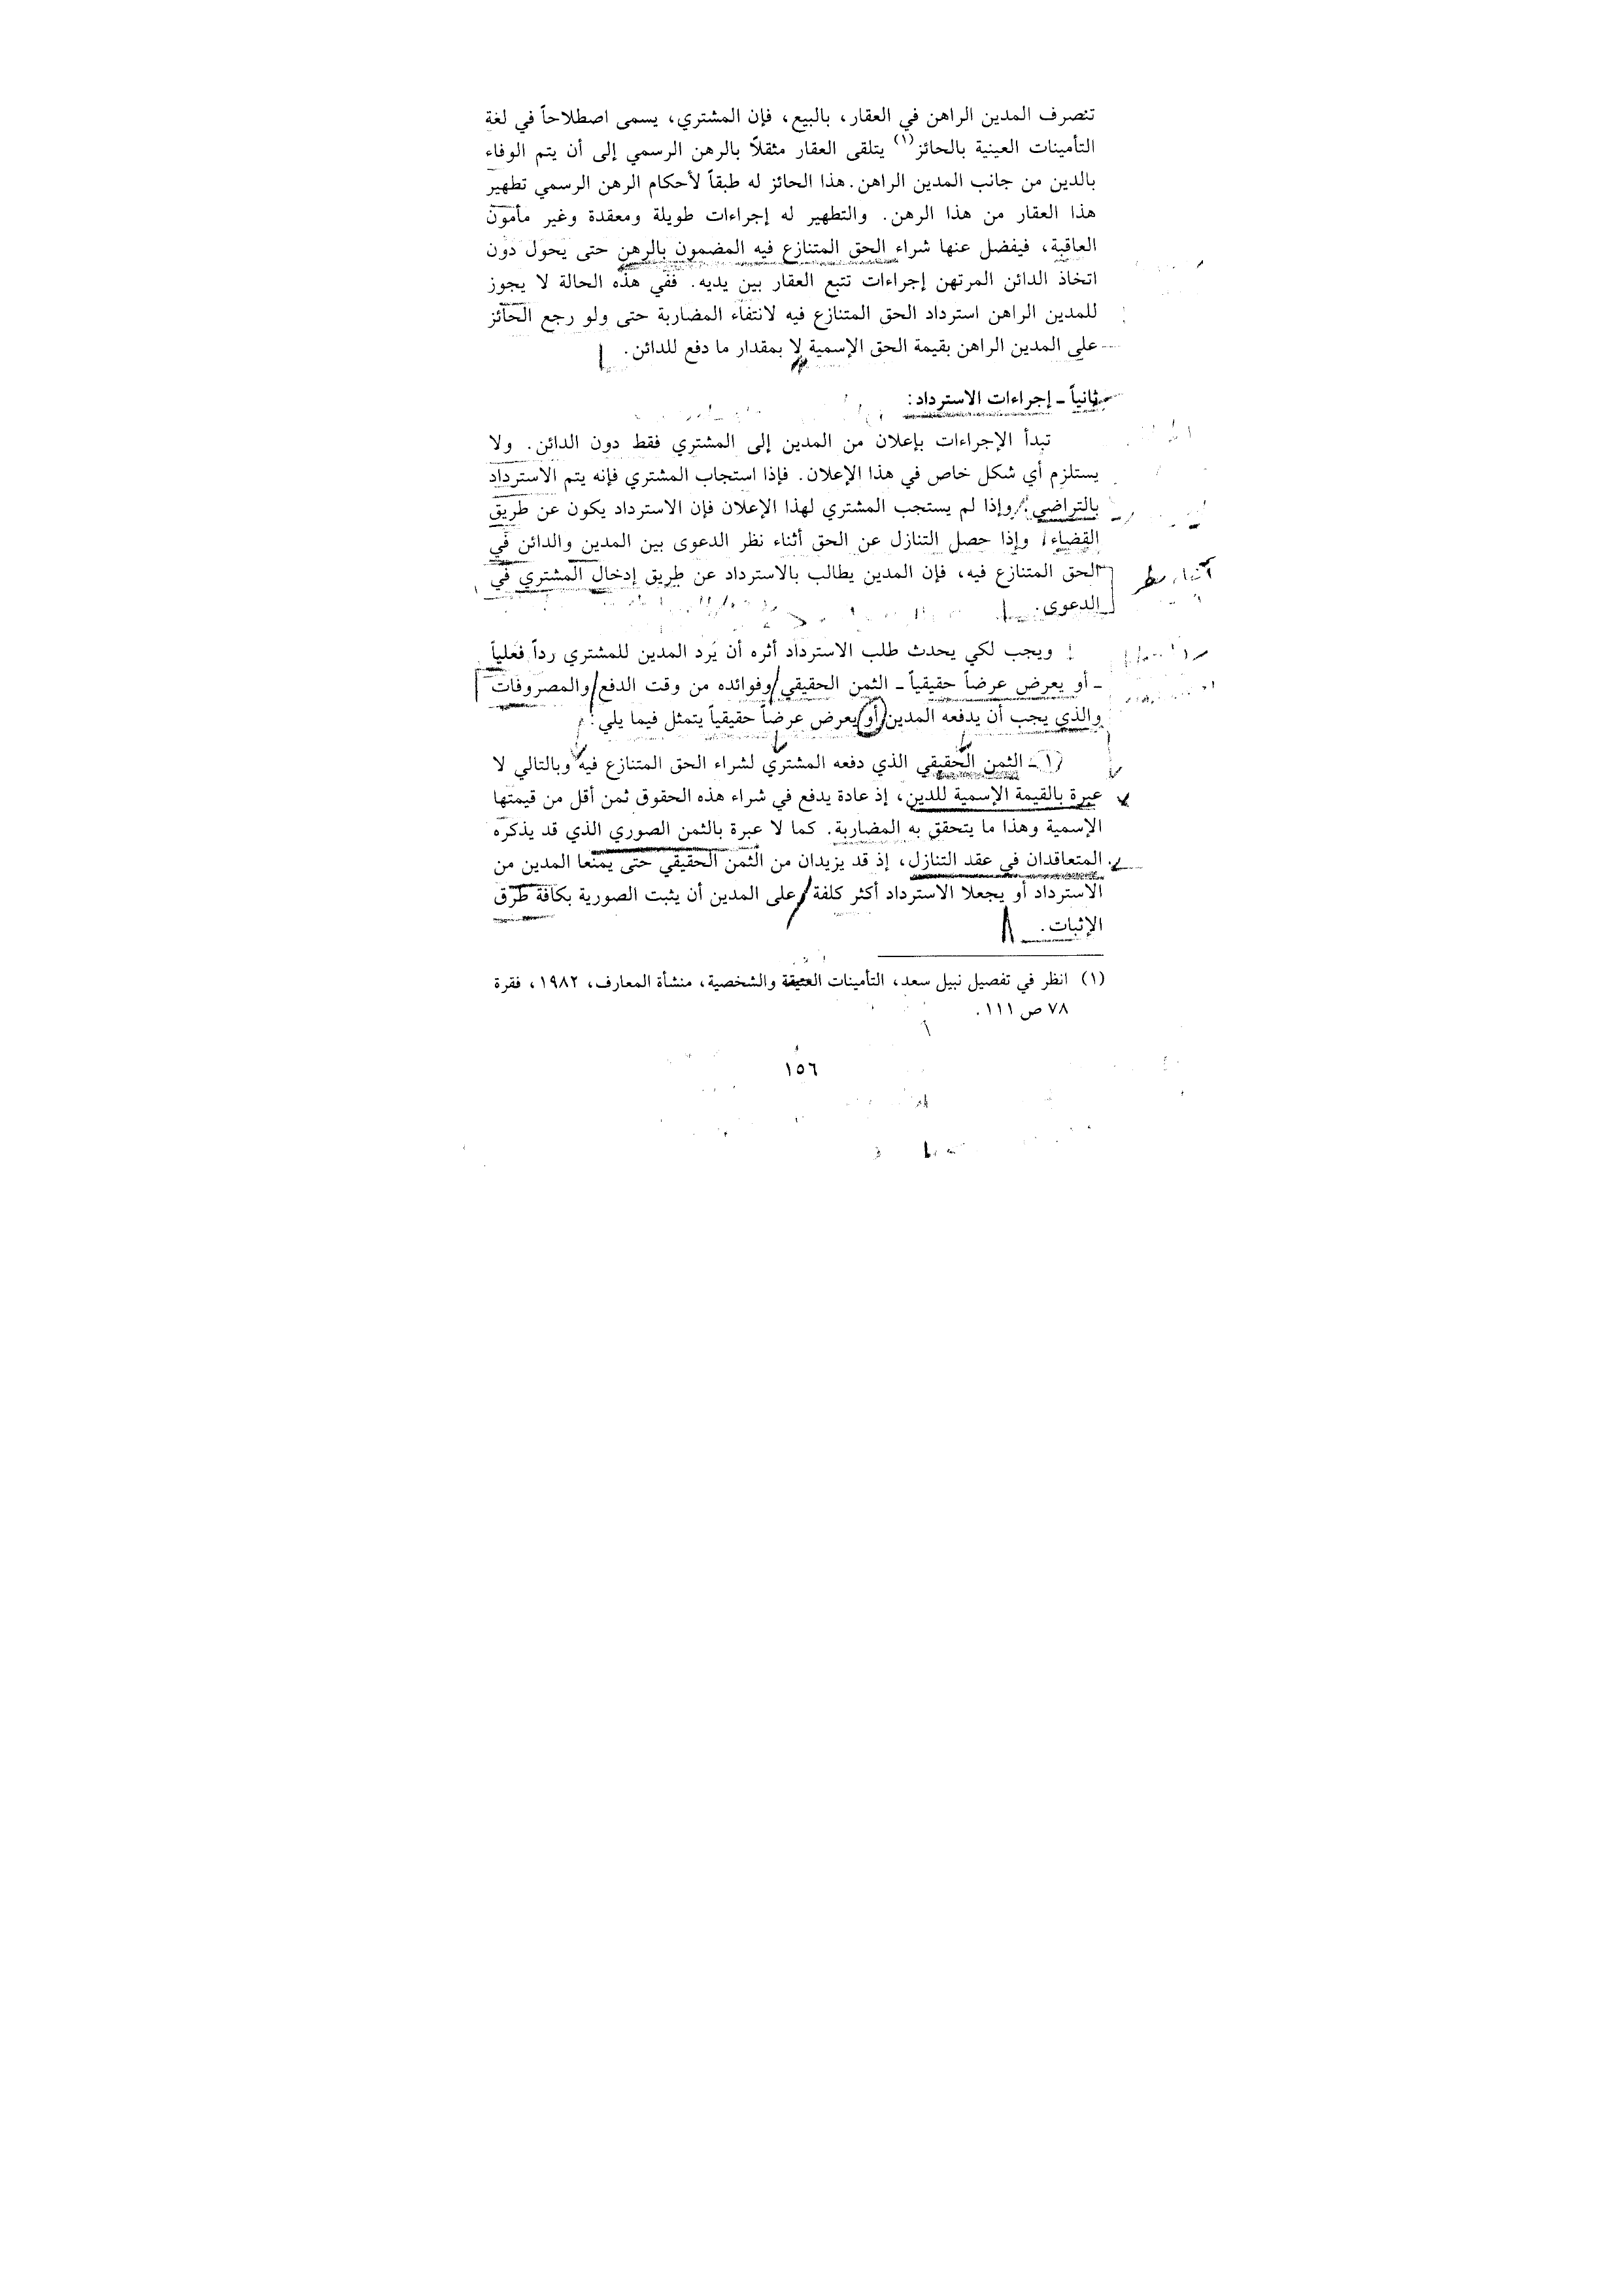 تتصرف المدين الراهن في العقار، بالبيع، فإن المشتري، يسمى اصطلاحاً في لغة
التأمينات العينية بالحائز(١) يتلقى العقار مثقلاً بالرهن الرسمي إلى أن يتم الوفاء
بالدين من جانب المدين الراهن. هذا الحائز له طبقاً لأحكام الرهن الرسمي تطهير
هذا العقار من هذا الرهن. والتطهير له إجراءات طويلة ومعقدة وغير مأمون
العاقبة، فيفضل عنها شراء الحق المتنازع فيه المضمون بالرهن حتى يحول دون
اتخاذ الدائن المرتهن إجراءات تتبع العقار بين يديه. ففي هذه الحالة لا يجوز
للمدين الراهن استرداد الحق المتنازع فيه لانتفاء المضاربة حتى ولو رجع الحائز
على المدين الراهن بقيمة الحق الإسمية لا بمقدار ما دفع للدائن.
ثانياً ـ إجراءات الاسترداد:
تبدأ الإجراءات بإعلان من المدين إلى المشتري فقط دون الدائن. ولا
يستلزم أي شكل خاص في هذا الإعلان. فإذا استجاب المشتري فإنه يتم الاسترداد
بالتراضي. وإذا لم يستجب المشتري لهذا الإعلان فإن الاسترداد يكون عن طريق
القضاء. وإذا حصل التنازل عن الحق أثناء نظر الدعوى بين المدين والدائن في
الحق المتنازع فيه، فإن المدين يطالب بالاسترداد عن طريق إدخال المشتري في
الدعوى.
ويجب لكي يحدث طلب الاسترداد أثره أن يَرد المدين للمشتري رداً فعلياً
ـ أو يعرض عرضاً حقيقياً ـ الثمن الحقيقي وفوائده من وقت الدفع والمصروفات
والذي يجب أن يدفعه المدين أو يعرض عرضاً حقيقياً يتمثل فيما يلي:
١ ـ الثمن الحقيقي الذي دفعه المشتري لشراء الحق المتنازع فيه وبالتالي لا
عبرة بالقيمة الإسمية للدين، إذ عادة يدفع في شراء هذه الحقوق ثمن أقل من قيمتها
الإسمية وهذا ما يتحقق به المضاربة. كما لا عبرة بالثمن الصوري الذي قد يذكره
المتعاقدان في عقد التنازل، إذ قد يزيدان من الثمن الحقيقي حتى يمنعا المدين من
الاسترداد أو يجعلا الاسترداد أكثر كلفة على المدين أن يثبت الصورية بكافة طرق
الإثبات.
(١) انظر في تفصيل نبيل سعد، التأمينات العينية والشخصية، منشأة المعارف، ١٩٨٢، فقرة
٧٨ ص ١١١.
١٥٦